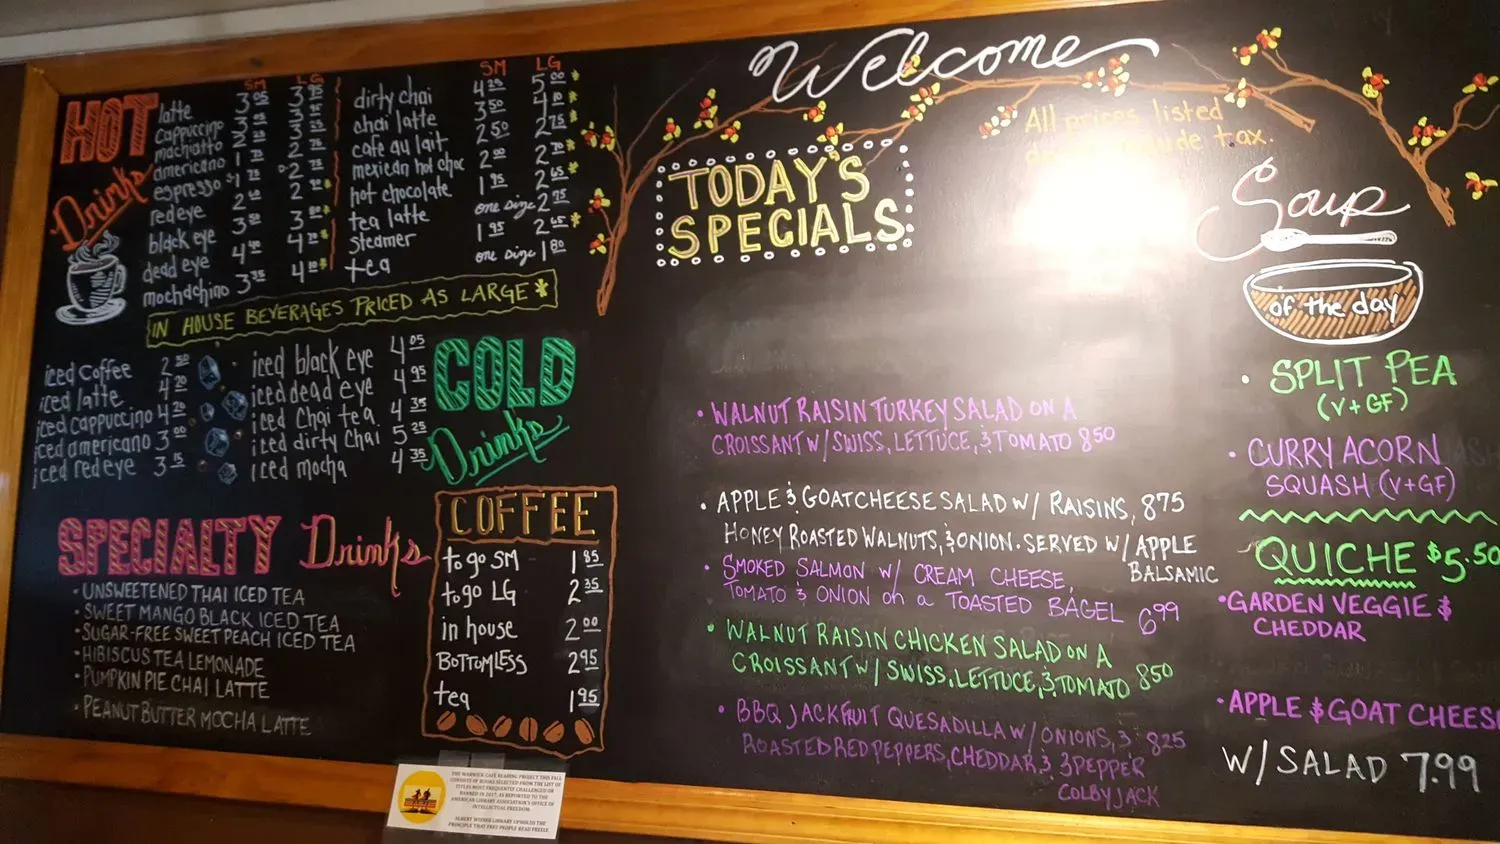 Welcome
All prices listed
tax.
HOT
Drinks
SM LG
latte 3
cappuccino 3
machiatto 3
americano 1 2
espresso 1 2
red eye 2
black eye 3 3
dead eye 4 4
mochachino 3 4
SM LG
dirty chai 4 25 5 00 *
chai latte 3 50 4 10 *
cafe au lait 2 50 2 75 *
mexican hot choc 2 00 2 70 *
hot chocolate 1 95 2 65 *
tea latte one size 2 75
steamer 1 95 2 65 *
tea one size 1 80
IN HOUSE BEVERAGES PRICED AS LARGE *
iced coffee 2 50
iced latte 4 20
iced cappuccino 4 20
iced americano 3 00
iced red eye 3 15
iced black eye 4 05
iced dead eye 4 95
iced chai tea 4 35
iced dirty chai 5 25
iced mocha 4 35
COLD
Drinks
SPECIALTY Drinks
• UNSWEETENED THAI ICED TEA
• SWEET MANGO BLACK ICED TEA
• SUGAR-FREE SWEET PEACH ICED TEA
• HIBISCUS TEA LEMONADE
• PUMPKIN PIE CHAI LATTE
• PEANUT BUTTER MOCHA LATTE
COFFEE
to go SM 1 85
to go LG 2 35
in house 2 00
BOTTOMLESS 2 95
tea 1 95
TODAY'S
SPECIALS
• WALNUT RAISIN TURKEY SALAD ON A
CROISSANT W/ SWISS, LETTUCE, & TOMATO 850
• APPLE & GOAT CHEESE SALAD W/ RAISINS, 875
HONEY ROASTED WALNUTS, & ONION. SERVED W/ APPLE
BALSAMIC
• SMOKED SALMON W/ CREAM CHEESE,
TOMATO & ONION on a TOASTED BAGEL 699
• WALNUT RAISIN CHICKEN SALAD ON A
CROISSANT W/ SWISS, LETTUCE, & TOMATO 850
• BBQ JACKFRUIT QUESADILLA W/ ONIONS, 825
ROASTED RED PEPPERS, CHEDDAR & 3 PEPPER
COLBY JACK
Soup
of the day
• SPLIT PEA
(V+GF)
• CURRY ACORN
SQUASH (V+GF)
QUICHE $5.50
• GARDEN VEGGIE &
CHEDDAR
• APPLE & GOAT CHEES
W/ SALAD 7.99
THE WARWICK CAFE READING PROJECT THIS FALL
CONSISTS OF BOOKS SELECTED FROM THE LIST OF
TITLES MOST FREQUENTLY CHALLENGED OR
BANNED IN 2017, AS REPORTED TO THE
AMERICAN LIBRARY ASSOCIATION'S OFFICE OF
INTELLECTUAL FREEDOM.
ALBERT WISNER LIBRARY UPHOLDS THE
PRINCIPLE THAT FREE PEOPLE READ FREELY.